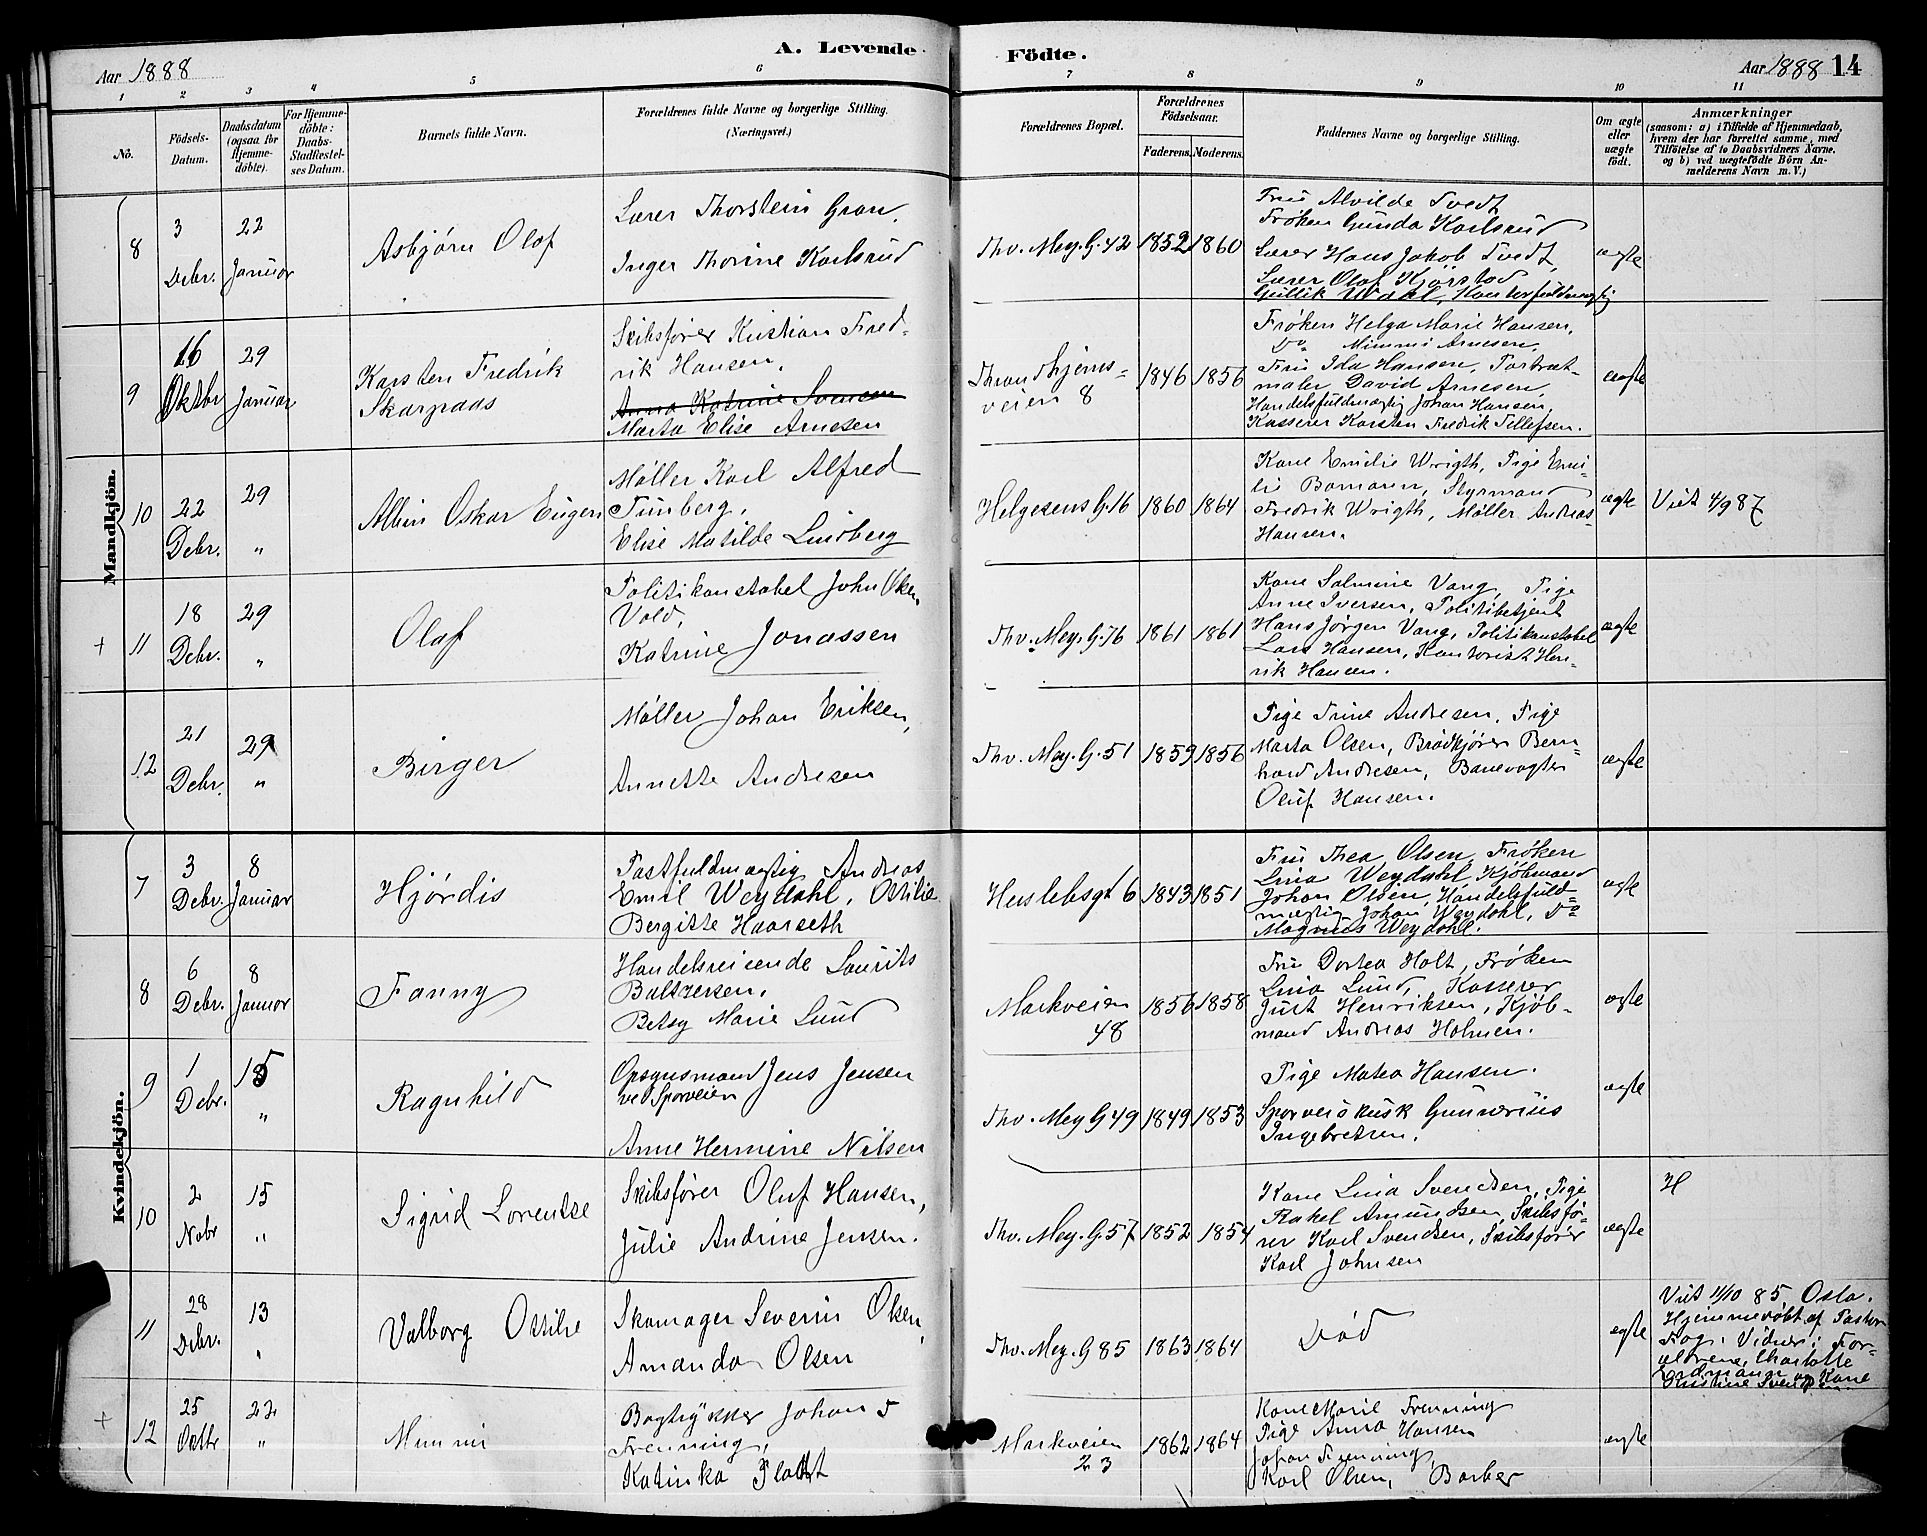 A. Levende Födte.
Aar 1888
Aar 1888 14
1 2 3 4 5 6 7 8 9 10 11
No.
Födsels-Datum.
Daabsdatum (ogsaa for Hjemme-döbte).
For Hjemme-döbte: Daabs-Stadfæstel-ses Datum.
Barnets fulde Navn.
Forældrenes fulde Navne og borgerlige Stilling. (Næringsvei.)
Forældrenes Bopæl.
Forældrenes Födselsaar.
Faderens. Moderens.
Faddernes Navne og borgerlige Stilling.
Om ægte eller uægte födt.
Anmærkninger
(saasom: a) i Tilfælde af Hjemmedaab,
hvem der har forrettet samme, med
Tilföielse af to Daabsvidners Navne,
og b) ved uægtefödte Börn An-
melderens Navn m. V.)
Mandkjön.
8
3 Debr.
22 Januar
Asbjørn Olaf
Lærer Thorstein Gran.
Inger Thorine Karlsrud
Thv. Mey. G. 42
1852 1860
Fru Alvilde Tvedt
Frøken Gunda Karlsrud
Lærer Hans Jakob Tvedt,
Lærer Olaf Kjørstad
Gullik Wahl, Kontorfuldmægtig
ægte
9
16 Oktbr
29 Januar
Karsten Fredrik
Skarpaas
Skibsfører Kristian Fred-
rik Hansen,
Anna Katrine Svensen
Marta Elise Arnesen
Throndhjems-
veien 8
1846 1856
Frøken Helga Marie Hansen,
Do Mimmi Arnesen,
Fru Ida Hansen, Portræt-
maler David Arnesen,
Handelsfuldmægtig Johan Hansen,
Kasserer Karsten Fredrik Tellefsen.
ægte
10
22 Debr.
29 "
Albin Oskar Eugen
Møller Karl Alfred
Tunberg,
Elise Matilde Lindberg
Helgesens G. 16
1860 1864
Kone Emilie Wrigth, Pige Emi-
lie Bomaren, Styrmand
Fredrik Wrigth, Møller Andreas
Hansen.
ægte
Viet 4/9 87
+ 11
18 Debr.
29 "
Olaf
Politikonstabel John Oken
Vold,
Katrine Jonassen
Thv. Mey. G. 76
1861 1861
Kone Salmine Vang, Pige
Anne Iversen, Politibetjent
Hans Jørgen Vang, Politikonstabel
Lars Hansen, Kontorist Hen-
rik Hansen.
ægte
12
21 Debr.
29 "
Birger
Møller Johan Eriksen,
Annette Andresen
Thv. Mey. G. 51
1859 1856
Pige Trine Andresen, Pige
Marta Olsen, Brødkjører Bern-
hard Andresen, Banevogter
Oluf Hansen.
ægte
Kvindekjön.
7
3 Debr.
8 Januar
Hjördis
Postfuldmægtig Andreas
Emil Weydahl, Ottilia
Bergitte Haarseth
Heslebsgt 6
1843 1851
Fru Thea Olsen, Frøken
Lina Weydahl, Kjøbmand
Johan Olsen, Handelsfuld-
mægtig Johan Weydahl, Do
Magnus Weydahl.
ægte
8
6 Debr.
8 Januar
Fanny
Handelsreisende Laurits
Baltzersen,
Betsy Marie Lund
Markveien
48
1856 1858
Fru Dortea Holt, Frøken
Lina Lund, Kasserer
Just Henriksen, Kjøb-
mand Andreas Holmen.
ægte
9
1 Debr.
15 "
Ragnhild
Opsynsmand Jens Jensen
ved Sporveien
Anne Hermine Nilsen
Thv. Mey G 49
1849 1853
Pige Matea Hansen.
Sporveiskusk Gunnerius
Ingebretsen.
ægte
10
2 Nobr
15 "
Sigrid Lorentse
Skibsfører Oluf Hansen,
Julie Andrine Jensen.
Thv. Mey. G. 57
1852 1854
Kone Lina Svendsen, Pige
Rakel Amundsen, Skibsfø-
rer Karl Svendsen, Skibsfører
Karl Johnsen
ægte
H
11
28 Debr.
13 "
Valborg Ottilie
Skomager Severin Olsen,
Amanda Olsen
Thv. Mey. G 85
1863 1864
Død
ægte
Viet 11/10 85 Oslo.
Hjemmedøbt af Pastor
Fog. Vidner: For-
ældrene, Charlotte
Erdmann og Kone
Kristine Svendsen.
+ 12
25 Octbr
22 "
Mimmi
Bogtrykker Johan
Frenning,
Katinka Pladt
Markveien
23
1862 1864
Kone Marie Frenning
Pige Anna Hansen
Johan Frenning,
Karl Olsen, Barber
ægte